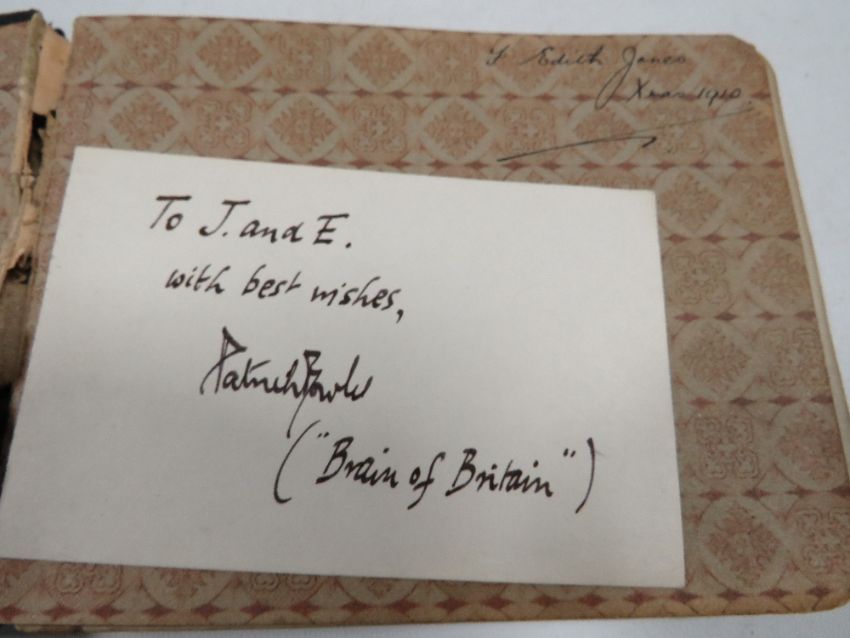 Edith Jones
Xmas 1910.
To J. and E.
with best wishes,
Patrick Bowle
("Brain of Britain")